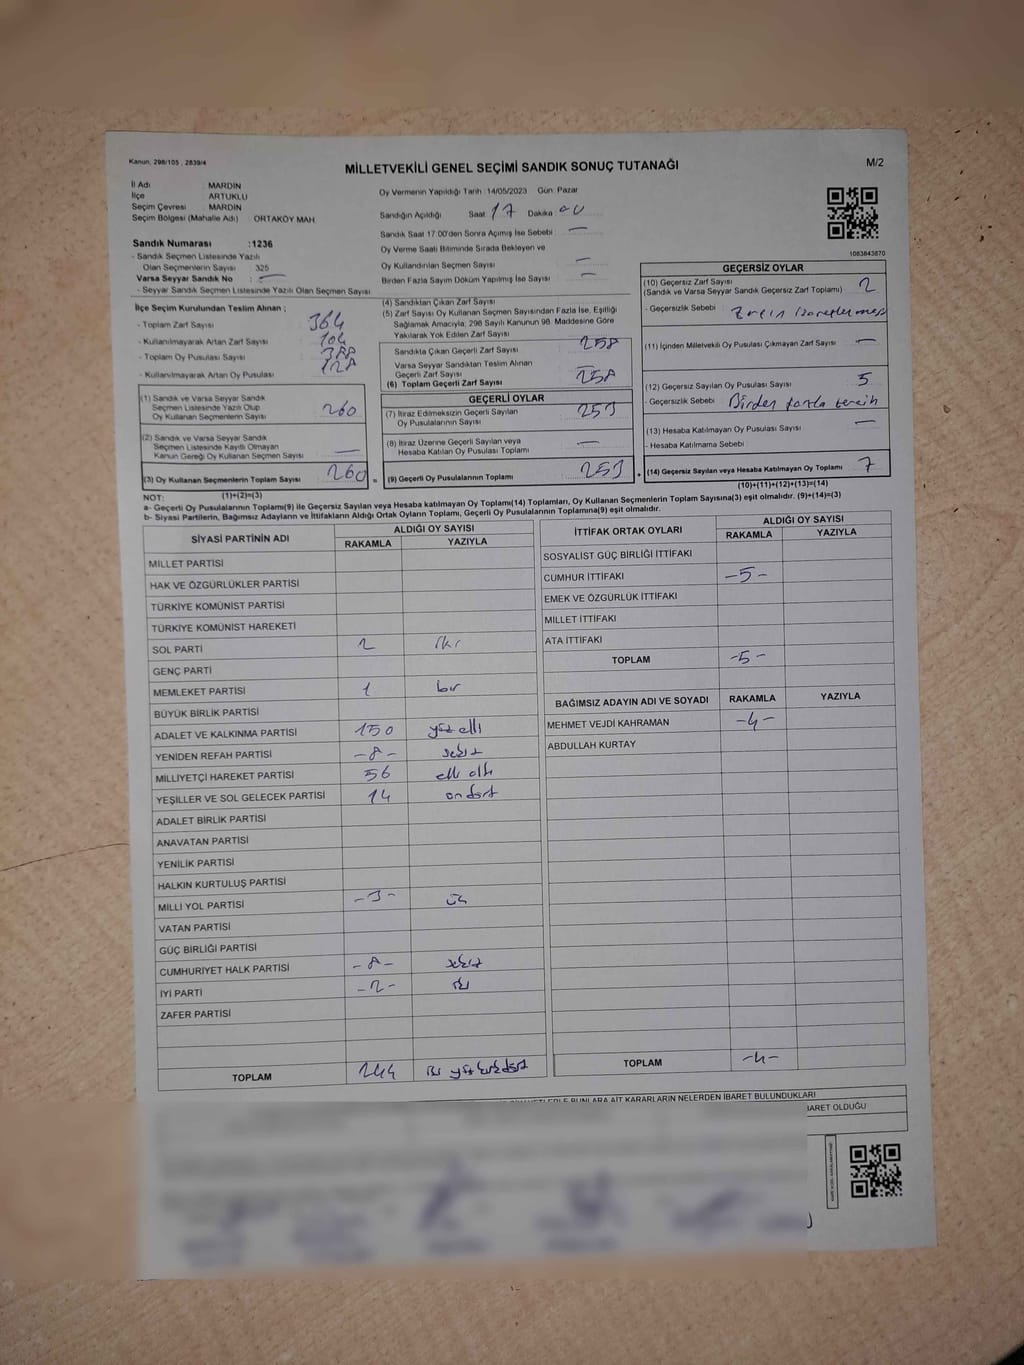 Kanun, 298/105 , 2839/4
MİLLETVEKİLİ GENEL SEÇİMİ SANDIK SONUÇ TUTANAĞI
M/2
İl Adı : MARDİN
İlçe : ARTUKLU
Seçim Çevresi : MARDİN
Seçim Bölgesi (Mahalle Adı) ORTAKÖY MAH.
Oy Vermenin Yapıldığı Tarih :14/05/2023 Gün :Pazar
Sandığın Açıldığı Saat 17 Dakika :00
Sandık Saat 17:00'den Sonra Açılmış İse Sebebi : —
Oy Verme Saati Bitiminde Sırada Bekleyen ve
Oy Kullandırılan Seçmen Sayısı —
Birden Fazla Sayım Döküm Yapılmış İse Sayısı —
Sandık Numarası :1236
- Sandık Seçmen Listesinde Yazılı
Olan Seçmenlerin Sayısı 325
Varsa Seyyar Sandık No : —
- Seyyar Sandık Seçmen Listesinde Yazılı Olan Seçmen Sayısı
1083843870
İlçe Seçim Kurulundan Teslim Alınan ;
- Toplam Zarf Sayısı 364
- Kullanılmayarak Artan Zarf Sayısı 104
- Toplam Oy Pusulası Sayısı 388
- Kullanılmayarak Artan Oy Pusulası 128
(1) Sandık ve Varsa Seyyar Sandık
Seçmen Listesinde Yazılı Olup
Oy Kullanan Seçmenlerin Sayısı 260
(2) Sandık ve Varsa Seyyar Sandık
Seçmen Listesinde Kayıtlı Olmayan
Kanun Gereği Oy Kullanan Seçmen Sayısı —
(3) Oy Kullanan Seçmenlerin Toplam Sayısı 260
(1)+(2)=(3)
(4) Sandıktan Çıkan Zarf Sayısı
(5) Zarf Sayısı Oy Kullanan Seçmen Sayısından Fazla İse, Eşitliği
Sağlamak Amacıyla, 298 Sayılı Kanunun 98. Maddesine Göre
Yakılarak Yok Edilen Zarf Sayısı
Sandıkta Çıkan Geçerli Zarf Sayısı 258
Varsa Seyyar Sandıktan Teslim Alınan
Geçerli Zarf Sayısı —
(6) Toplam Geçerli Zarf Sayısı 258
GEÇERLİ OYLAR
(7) İtiraz Edilmeksizin Geçerli Sayılan
Oy Pusulalarının Sayısı 253
(8) İtiraz Üzerine Geçerli Sayılan veya
Hesaba Katılan Oy Pusulası Toplamı —
= (9) Geçerli Oy Pusulalarının Toplamı 253
GEÇERSİZ OYLAR
(10) Geçersiz Zarf Sayısı
(Sandık ve Varsa Seyyar Sandık Geçersiz Zarf Toplamı) 2
- Geçersizlik Sebebi :
(11) İçinden Milletvekili Oy Pusulası Çıkmayan Zarf Sayısı —
(12) Geçersiz Sayılan Oy Pusulası Sayısı 5
- Geçersizlik Sebebi : Birden fazla tercih
(13) Hesaba Katılmayan Oy Pusulası Sayısı —
- Hesaba Katılmama Sebebi
+ (14) Geçersiz Sayılan veya Hesaba Katılmayan Oy Toplamı 7
(10)+(11)+(12)+(13)=(14)
NOT:
a- Geçerli Oy Pusulalarının Toplamı(9) ile Geçersiz Sayılan veya Hesaba katılmayan Oy Toplamı(14) Toplamları, Oy Kullanan Seçmenlerin Toplam Sayısına(3) eşit olmalıdır. (9)+(14)=(3)
b- Siyasi Partilerin, Bağımsız Adayların ve İttifakların Aldığı Ortak Oyların Toplamı, Geçerli Oy Pusulalarının Toplamına(9) eşit olmalıdır.
SİYASİ PARTİNİN ADI
ALDIĞI OY SAYISI
RAKAMLA YAZIYLA
MİLLET PARTİSİ
HAK VE ÖZGÜRLÜKLER PARTİSİ
TÜRKİYE KOMÜNİST PARTİSİ
TÜRKİYE KOMÜNİST HAREKETİ
SOL PARTİ 2 iki
GENÇ PARTİ
MEMLEKET PARTİSİ 1 bir
BÜYÜK BİRLİK PARTİSİ
ADALET VE KALKINMA PARTİSİ 150 yüz elli
YENİDEN REFAH PARTİSİ -8- sekiz
MİLLİYETÇİ HAREKET PARTİSİ 56 elli altı
YEŞİLLER VE SOL GELECEK PARTİSİ 14 on dört
ADALET BİRLİK PARTİSİ
ANAVATAN PARTİSİ
YENİLİK PARTİSİ
HALKIN KURTULUŞ PARTİSİ
MİLLİ YOL PARTİSİ -3- üç
VATAN PARTİSİ
GÜÇ BİRLİĞİ PARTİSİ
CUMHURİYET HALK PARTİSİ -8- sekiz
İYİ PARTİ -2- iki
ZAFER PARTİSİ
TOPLAM 244 iki yüz kırk dört
İTTİFAK ORTAK OYLARI
ALDIĞI OY SAYISI
RAKAMLA YAZIYLA
SOSYALİST GÜÇ BİRLİĞİ İTTİFAKI
CUMHUR İTTİFAKI -5-
EMEK VE ÖZGÜRLÜK İTTİFAKI
MİLLET İTTİFAKI
ATA İTTİFAKI
TOPLAM -5-
BAĞIMSIZ ADAYIN ADI VE SOYADI RAKAMLA YAZIYLA
MEHMET VEJDİ KAHRAMAN -4-
ABDULLAH KURTAY
TOPLAM -4-
BUNLARA AİT KARARLARIN NELERDEN İBARET BULUNDUKLARI
İBARET OLDUĞU